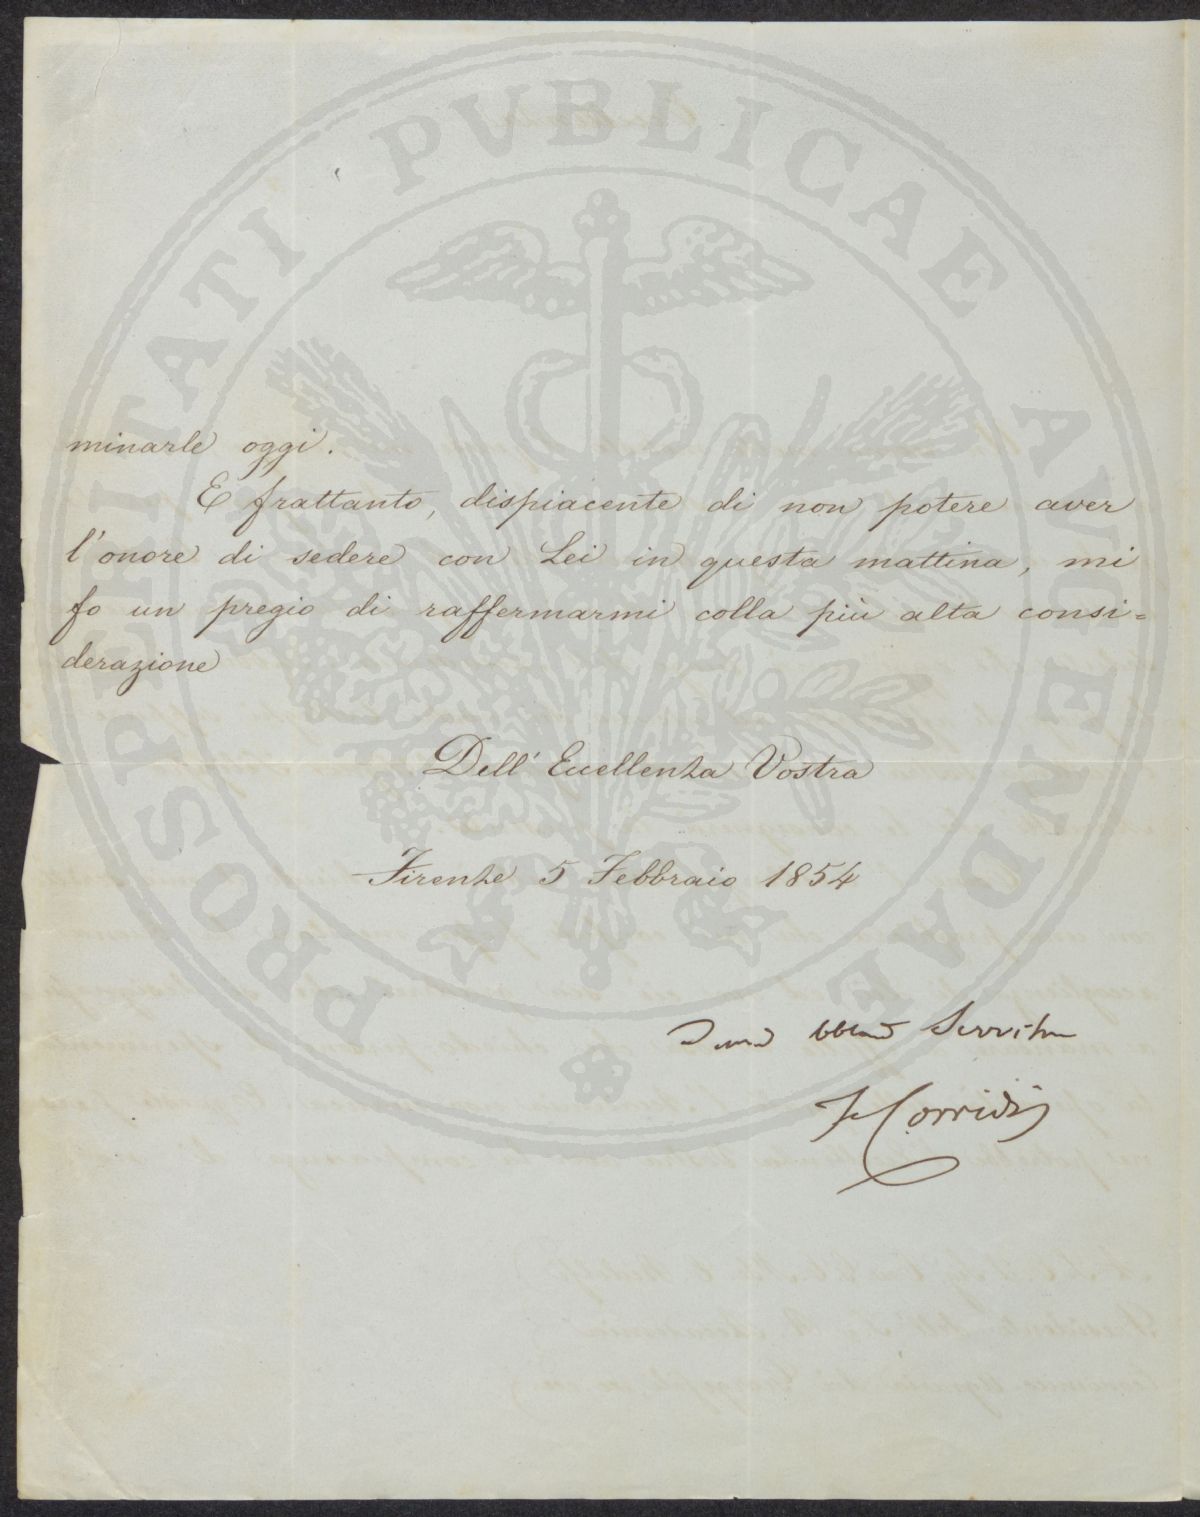 PROSPERITATI PUBLICAE AUGENDAE
minarle oggi.
E frattanto, dispiacente di non potere aver
l'onore di sedere con Lei in questa mattina, mi
fo un pregio di raffermarmi colla più alta consi=
derazione
Dell' Eccellenza Vostra
Firenze 5 Febbraio 1854
Servitore
F Corridi